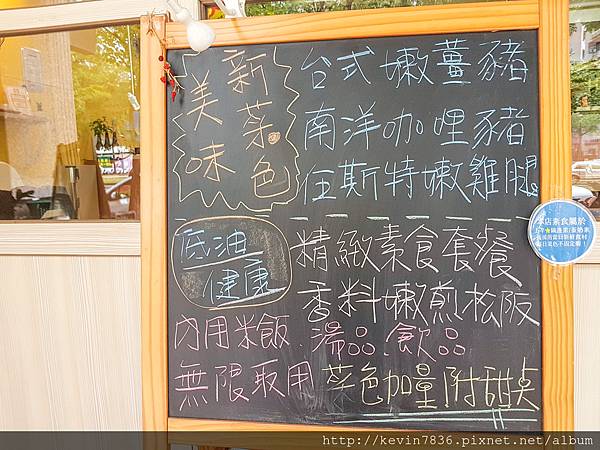 新菜色
美味
台式嫩薑豬
南洋咖哩豬
伍斯特嫩雞腿
低油
健康
精緻素食套餐
香料嫩煎松阪
內用米飯.湯品.飲品
無限取用 菜色加量附甜點
本店素食屬於
http://kevin7836.pixnet.net/album